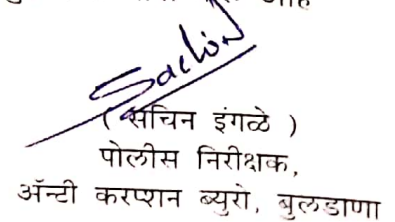 आहे
Sachin
( सचिन इंगळे )
पोलीस निरीक्षक,
ॲन्टी करप्शन ब्युरो, बुलडाणा